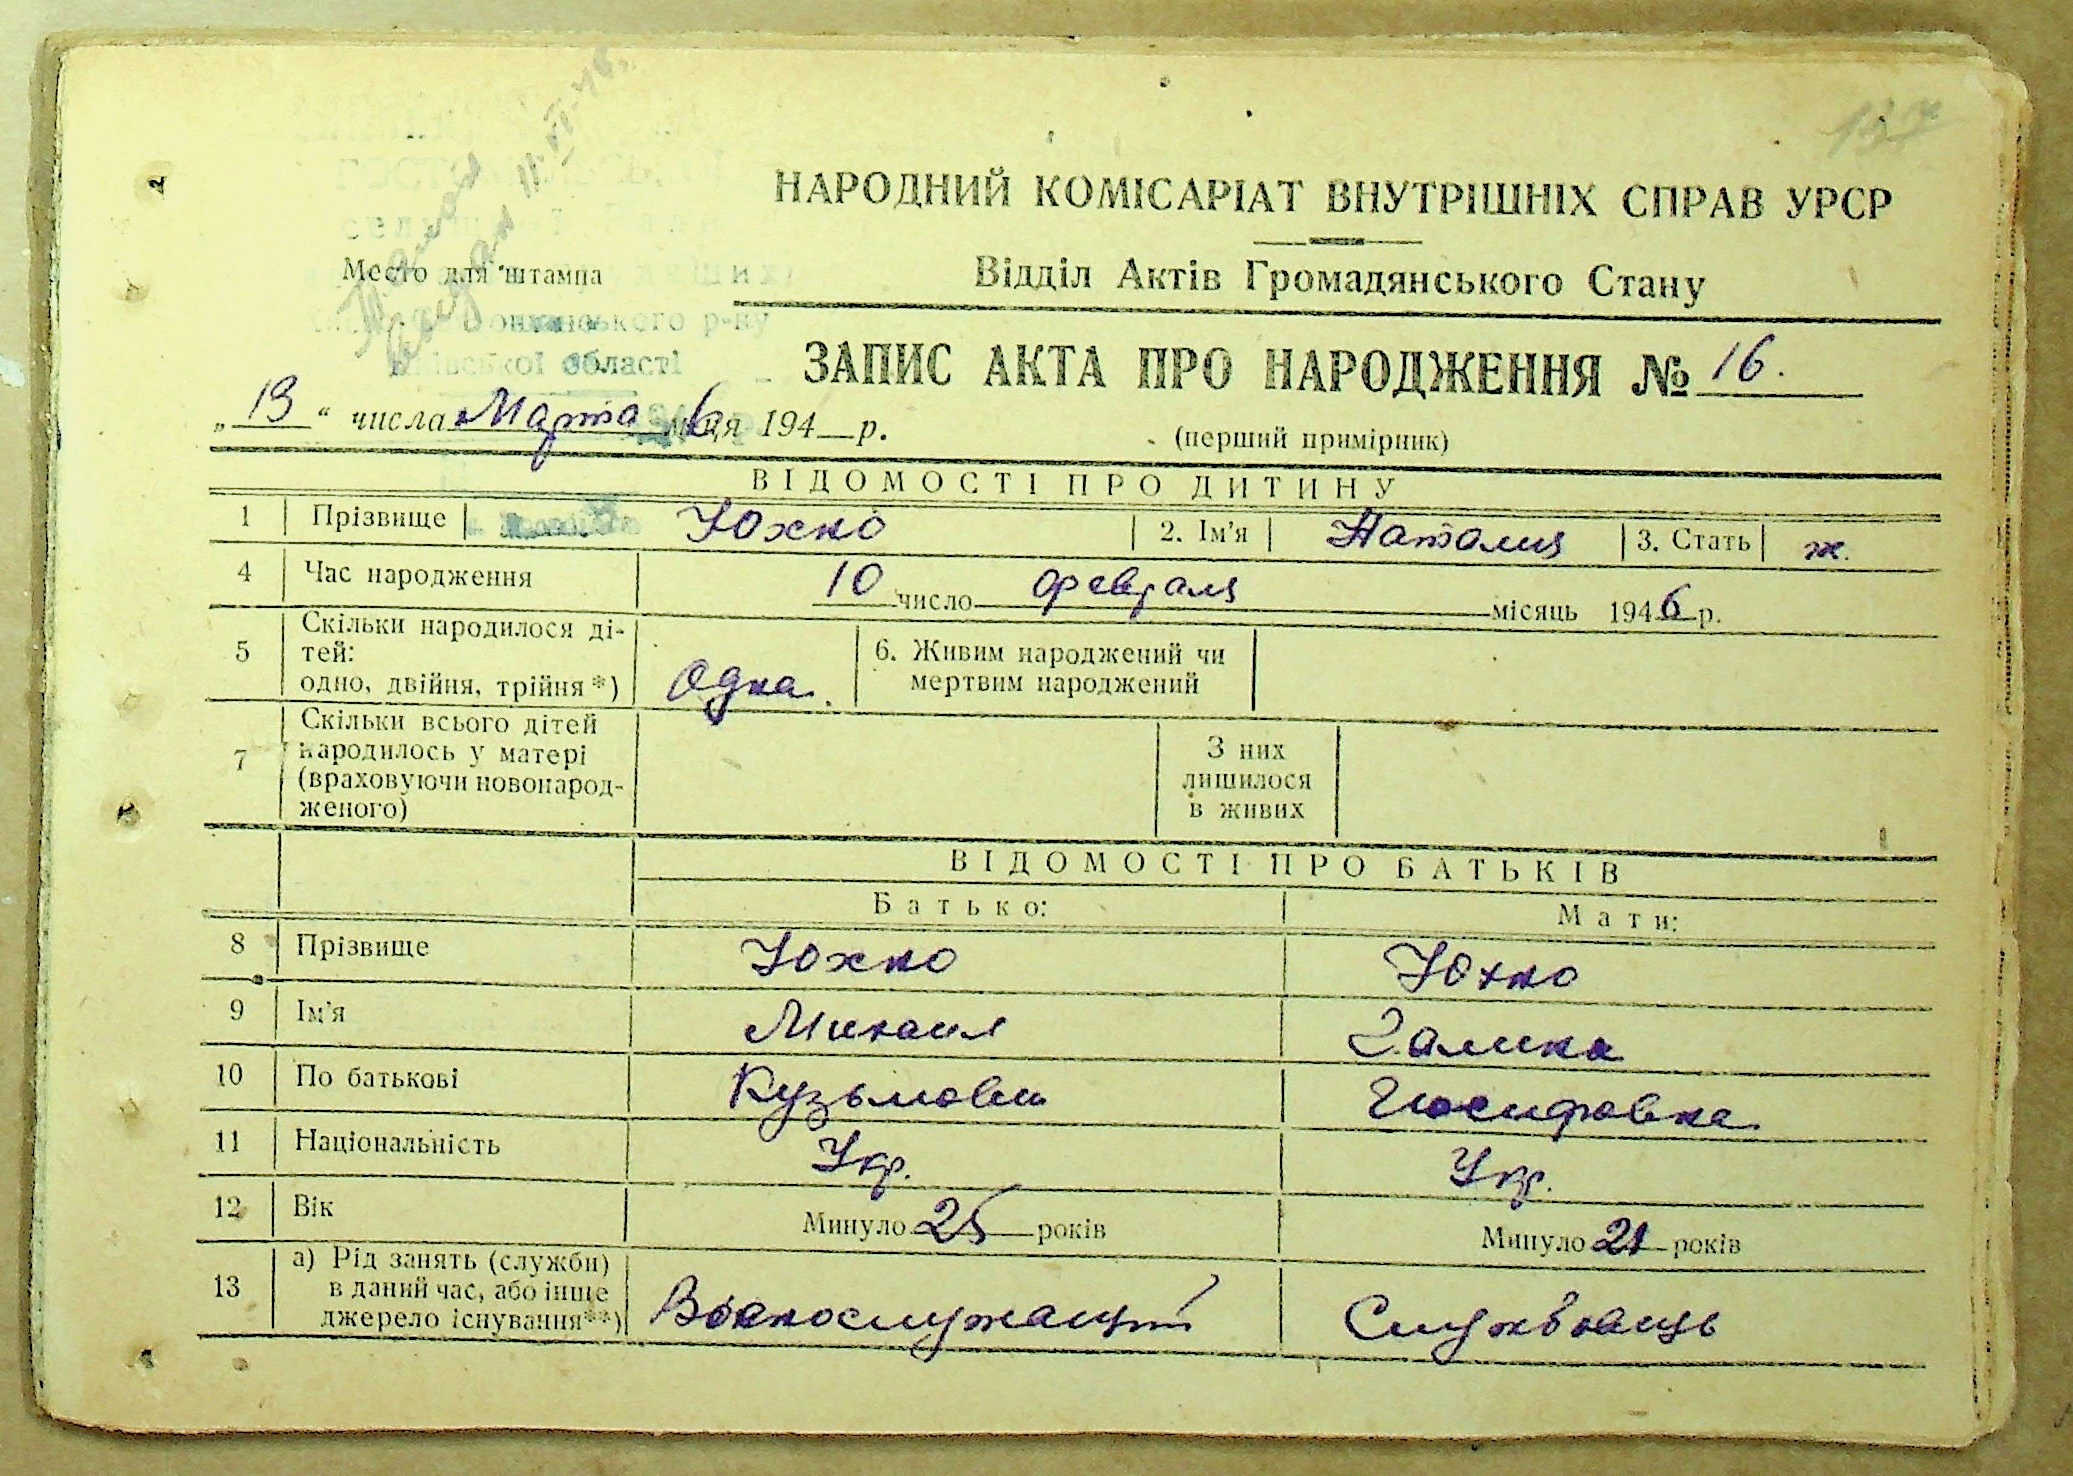 НАРОДНИЙ КОМІСАРІАТ ВНУТРІШНІХ СПРАВ УРСР
Место для штампа
Відділ Актів Громадянського Стану
р-ну
області
ЗАПИС АКТА ПРО НАРОДЖЕННЯ № 16.
„13“ числа Марта м-ця 1946 р.
(перший примірник)
ВІДОМОСТІ ПРО ДИТИНУ
1 Прізвище Юхно 2. Ім'я Наталия 3. Стать ж.
4 Час народження 10 число февраля місяць 1946 р.
5 Скільки народилося ді-
тей:
одно, двійня, трійня*) Одна.
6. Живим народжений чи
мертвим народжений
7 Скільки всього дітей
народилось у матері
(враховуючи новонарод-
женого)
З них
лишилося
в живих
ВІДОМОСТІ ПРО БАТЬКІВ
Батько: Мати:
8 Прізвище Юхно Юхно
9 Ім'я Михаил Галина
10 По батькові Кузьмович Иосифовна
11 Національність Укр. Укр.
12 Вік Минуло 25 років Минуло 21 років
13 а) Рід занять (служби)
в даний час, або інше
джерело існування**) Военнослужащий Службовець